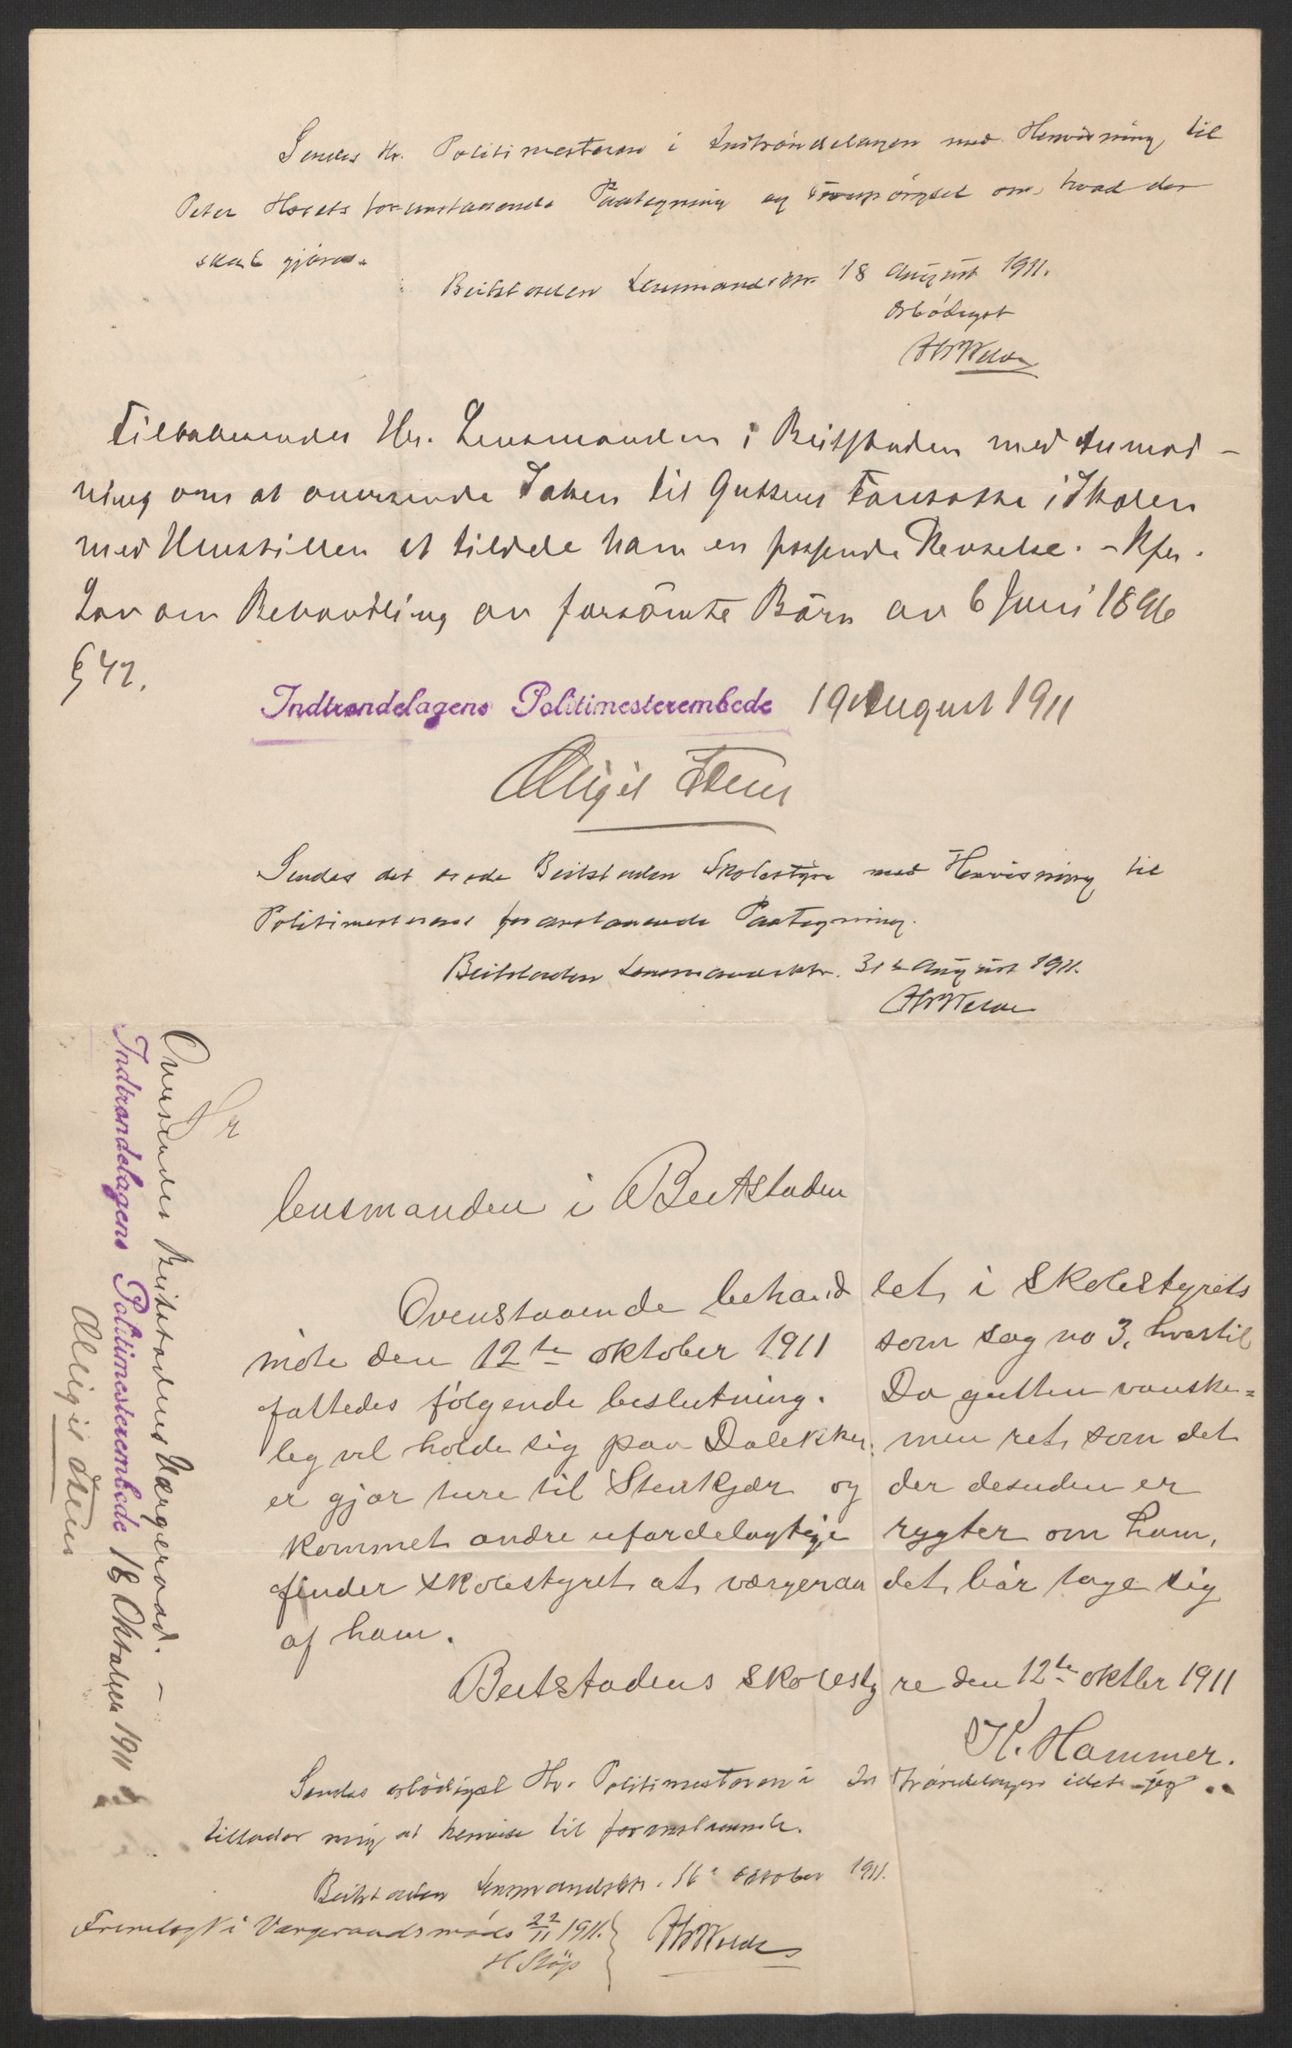 Sendes Hr. Politimesteren i Indtröndelagen med Henvisning til
Peter foranstaaende Paategning og Forespörgsel om, hvad der
skal gjöres.
Beitstaden Lensmandsktr. 18 August 1911.
Ærbödigst
Tilbagesendes Hr. Lensmanden i Beitstaden med Anmod-
ning om at oversende Saken til Guttens Foresatte i Skolen
med Henstillen at tildele ham en passende Revselse. - Kfr.
Lov om Behandling av forsömte Börn av 6 Juni 1896
§ 47.
Indtrondelagens Politimesterembede 19 August 1911
Sendes det ærede Beitstaden Skolestyre med Henvisning til
Politimesterens foranstaaende Paategning.
Beitstaden Lensmandsktr. 31te August 1911.
Hr
lensmanden i Beitstaden
Ovenstaaende behandlet i skolestyrets
möte den 12te oktober 1911 som sag no 3, hvortil
fattedes følgende beslutning. Da gutten vanske-
leg vil holde sig paa Dalekken, men ret som det
er gjør ture til Stenkjær og der desuden er
kommet andre ufordelagtige rygter om ham,
finder skolestyret at værgeraadet bør tage sig
af ham.
Beitstadens skolestyre den 12te oktbr 1911
K. Hammer.
Sendes ærbödigst Hr. Politimesteren i Indtröndelagen idet jeg
tillader mig at henvise til foranstaaende.
Beitstaden Lensmandsktr. 16 oktober 1911.
Fremlagt i Værgeraadsmöde 22/11 1911.
Oversendes Beitstadens Værgeraad. -
Indtrondelagens Politimesterembede 18 Oktober 1911